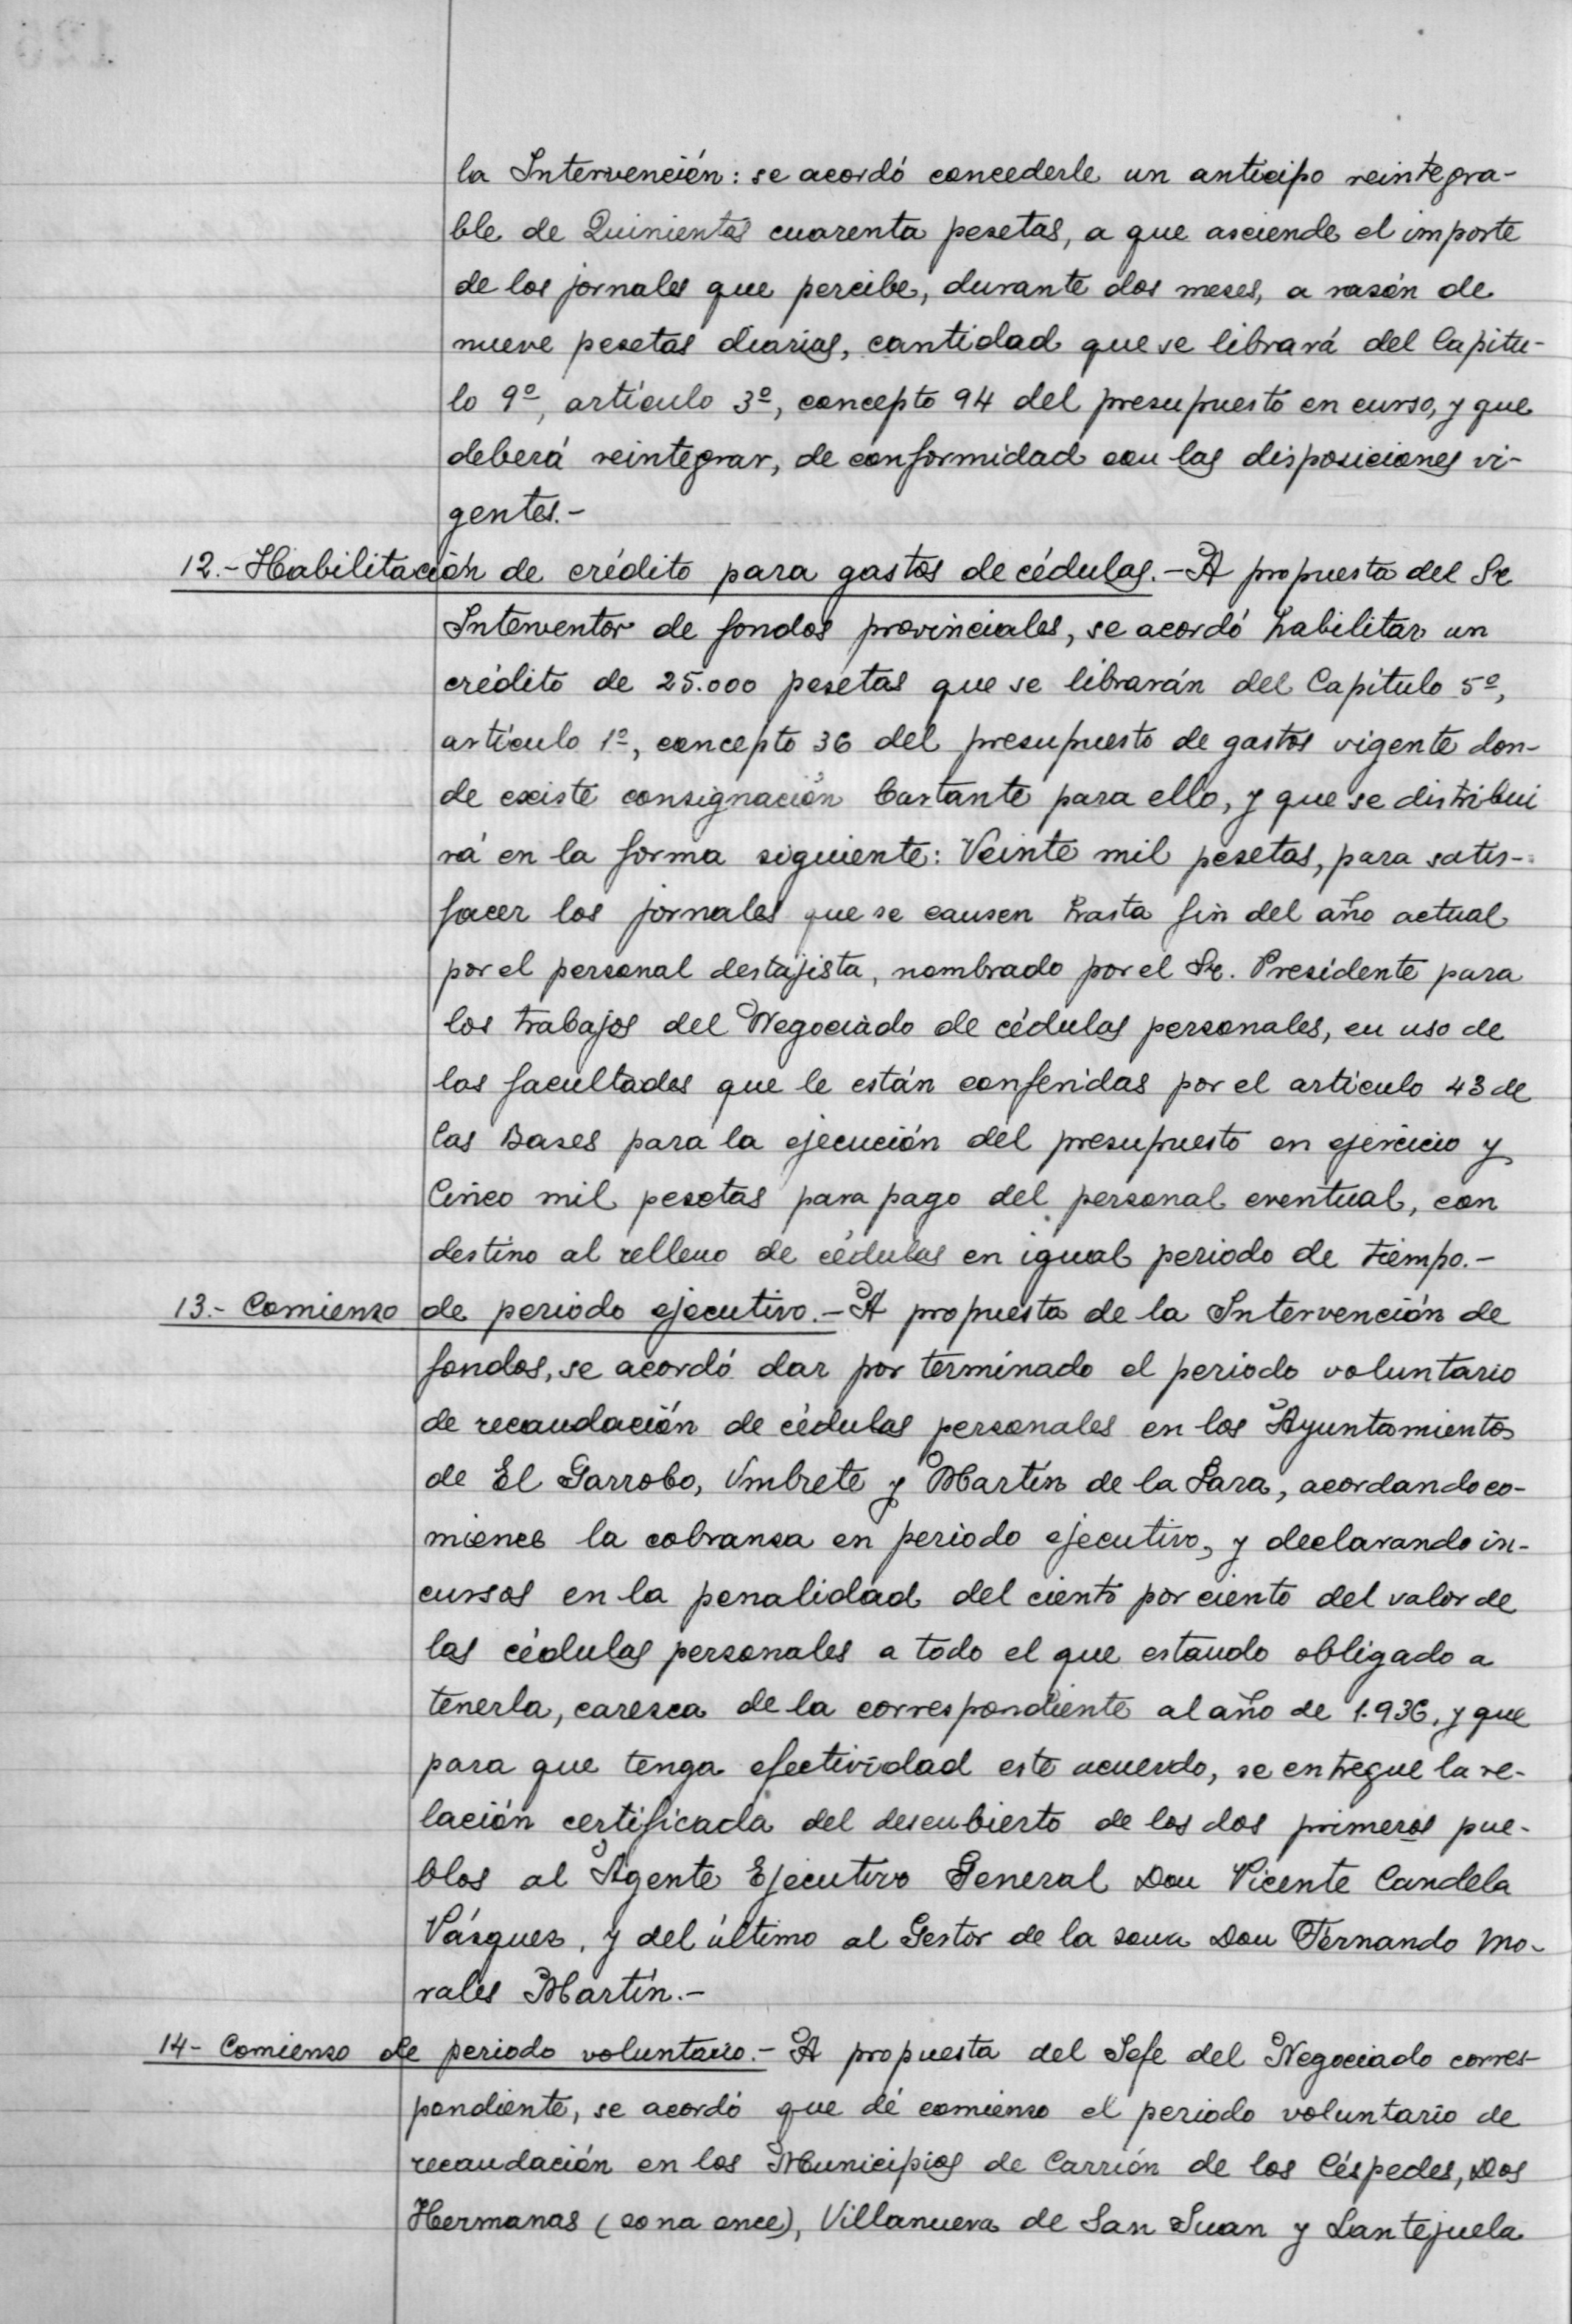 la Intervención: se acordó concederle un anticipo reintegra-
ble de Quinientas cuarenta pesetas, a que asciende el importe
de los jornales que percibe, durante dos meses, a razón de
nueve pesetas diarias, cantidad que se librará del Capítu-
lo 9º, artículo 3º, concepto 94 del presupuesto en curso, y que
deberá reintegrar, de conformidad con las disposiciones vi-
gentes.-
12.- Habilitación de crédito para gastos de cédulas.- A propuesta del Sr
Interventor de fondos provinciales, se acordó habilitar un
crédito de 25.000 pesetas que se librarán del Capítulo 5º,
artículo 1º, concepto 36 del presupuesto de gastos vigente don-
de existe consignación bastante para ello, y que se distribui
rá en la forma siguiente: Veinte mil pesetas, para satis-
facer los jornales que se causen hasta fin del año actual
por el personal destajista, nombrado por el Sr. Presidente para
los trabajos del Negociado de cédulas personales, en uso de
las facultades que le están conferidas por el artículo 43 de
las Bases para la ejecución del presupuesto en ejercicio y
Cinco mil pesetas para pago del personal eventual, con
destino al relleno de cédulas en igual periodo de tiempo.-
13.- Comienzo de periodo ejecutivo.- A propuesta de la Intervención de
fondos, se acordó dar por terminado el periodo voluntario
de recaudación de cédulas personales en los Ayuntamientos
de El Garrobo, Umbrete y Martín de la Jara, acordando co-
mience la cobranza en periodo ejecutivo, y declarando in-
cursos en la penalidad del ciento por ciento del valor de
las cédulas personales a todo el que estando obligado a
tenerla, carezca de la correspondiente al año de 1.936, y que
para que tenga efectividad este acuerdo, se entregue la re-
lación certificada del descubierto de los dos primeros pue-
blos al Agente Ejecutivo General Don Vicente Candela
Vázquez, y del último al Gestor de la zona Don Fernando Mo-
rales Martín.-
14- Comienzo de periodo voluntario.- A propuesta del Jefe del Negociado corres-
pondiente, se acordó que dé comienzo el periodo voluntario de
recaudación en los Municipios de Carrión de los Céspedes, Dos
Hermanas (zona once), Villanueva de San Juan y Lantejuela